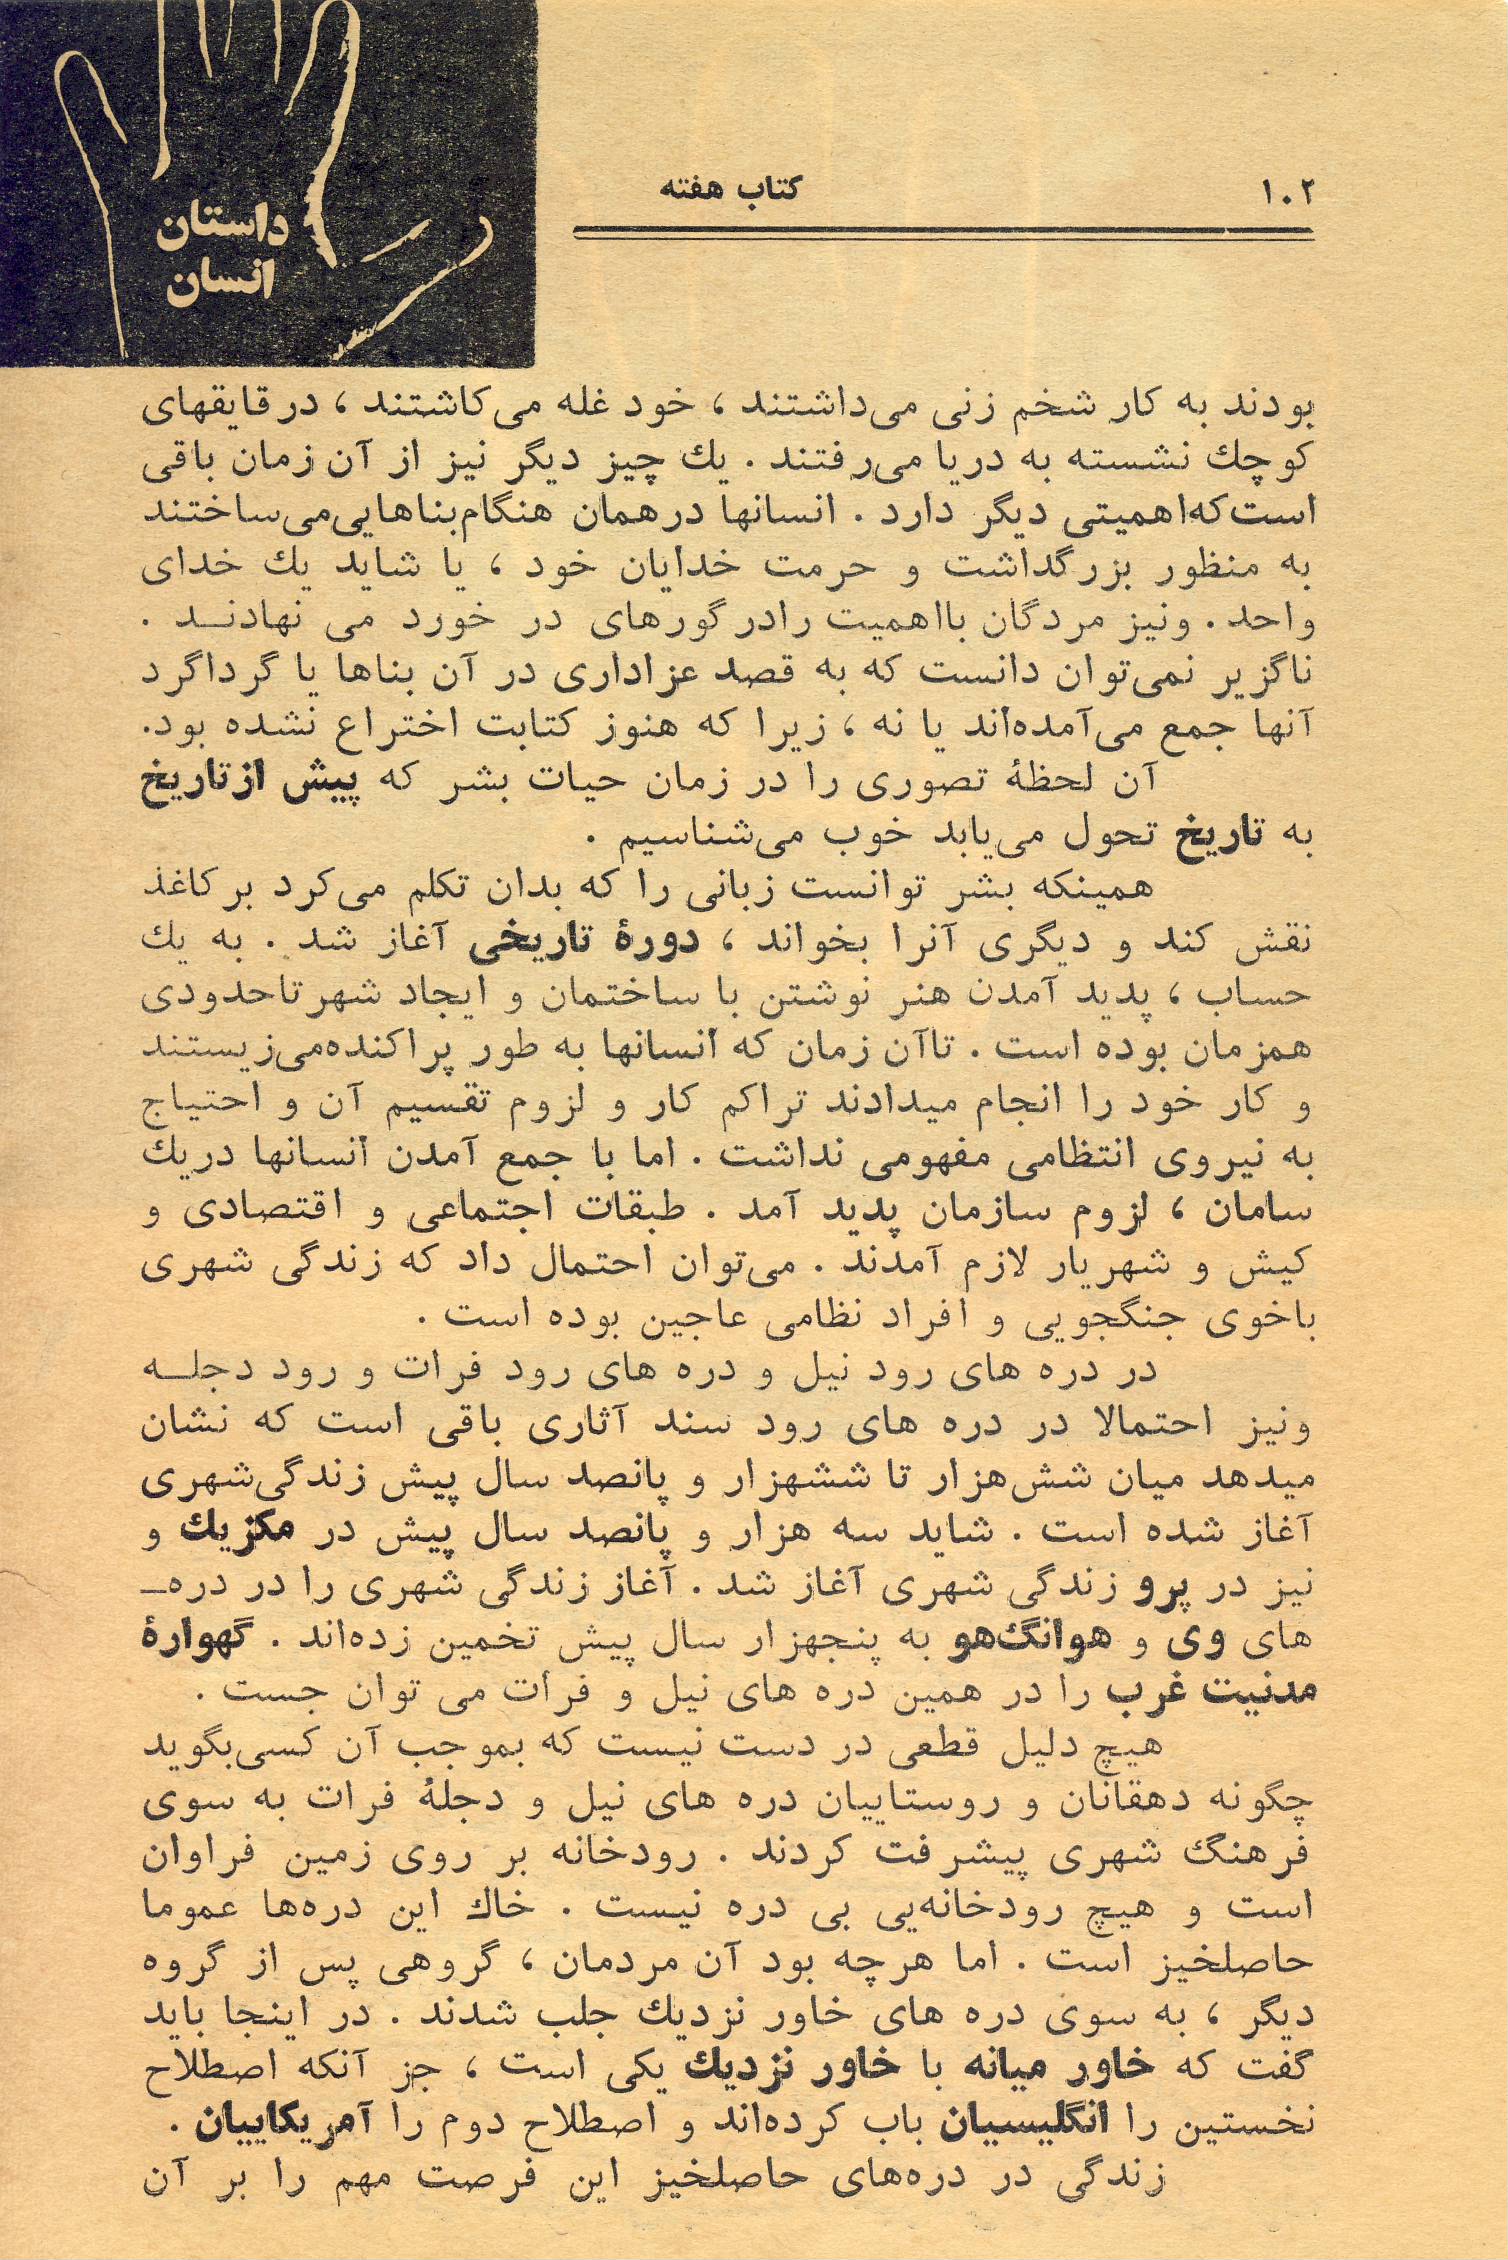 ۱۰۲
کتاب هفته
داستان
انسان
بودند به کار شخم زنی می‌داشتند ، خود غله می‌کاشتند ، در قایقهای
کوچك نشسته به دریا می‌رفتند . یك چیز دیگر نیز از آن زمان باقی
است که اهمیتی دیگر دارد . انسانها در همان هنگام بناهایی می‌ساختند
به منظور بزرگداشت و حرمت خدایان خود ، یا شاید یك خدای
واحد . ونیز مردگان بااهمیت رادر گورهای در خورد می نهادنــد .
ناگزیر نمی‌توان دانست که به قصد عزاداری در آن بناها یا گرداگرد
آنها جمع می‌آمده‌اند یا نه ، زیرا که هنوز کتابت اختراع نشده بود.
آن لحظهٔ تصوری را در زمان حیات بشر که پیش از تاریخ
به تاریخ تحول می‌یابد خوب می‌شناسیم .
همینکه بشر توانست زبانی را که بدان تکلم می‌کرد بر کاغذ
نقش کند و دیگری آنرا بخواند ، دورهٔ تاریخی آغاز شد . به یك
حساب ، پدید آمدن هنر نوشتن با ساختمان و ایجاد شهر تاحدودی
همزمان بوده است . تاآن زمان که انسانها به طور پراکنده می‌زیستند
و کار خود را انجام میدادند تراکم کار و لزوم تقسیم آن و احتیاج
به نیروی انتظامی مفهومی نداشت . اما با جمع آمدن انسانها دریك
سامان ، لزوم سازمان پدید آمد . طبقات اجتماعی و اقتصادی و
کیش و شهریار لازم آمدند . می‌توان احتمال داد که زندگی شهری
باخوی جنگجویی و افراد نظامی عاجین بوده است .
در دره های رود نیل و دره های رود فرات و رود دجلــه
ونیز احتمالا در دره های رود سند آثاری باقی است که نشان
میدهد میان شش‌هزار تا ششهزار و پانصد سال پیش زندگی شهری
آغاز شده است . شاید سه هزار و پانصد سال پیش در مکزیك و
نیز در پرو زندگی شهری آغاز شد . آغاز زندگی شهری را در دره‌ـ
های وی و هوانگ‌هو به پنجهزار سال پیش تخمین زده‌اند . گهوارهٔ
مدنیت غرب را در همین دره های نیل و فرات می توان جست .
هیچ دلیل قطعی در دست نیست که بموجب آن کسی بگوید
چگونه دهقانان و روستاییان دره های نیل و دجلهٔ فرات به سوی
فرهنگ شهری پیشرفت کردند . رودخانه بر روی زمین فراوان
است و هیچ رودخانه‌یی بی دره نیست . خاك این دره‌ها عموما
حاصلخیز است . اما هرچه بود آن مردمان ، گروهی پس از گروه
دیگر ، به سوی دره های خاور نزدیك جلب شدند . در اینجا باید
گفت که خاور میانه با خاور نزدیك یکی است ، جز آنکه اصطلاح
نخستین را انگلیسیان باب کرده‌اند و اصطلاح دوم را آمریکاییان .
زندگی در دره‌های حاصلخیز این فرصت مهم را بر آن